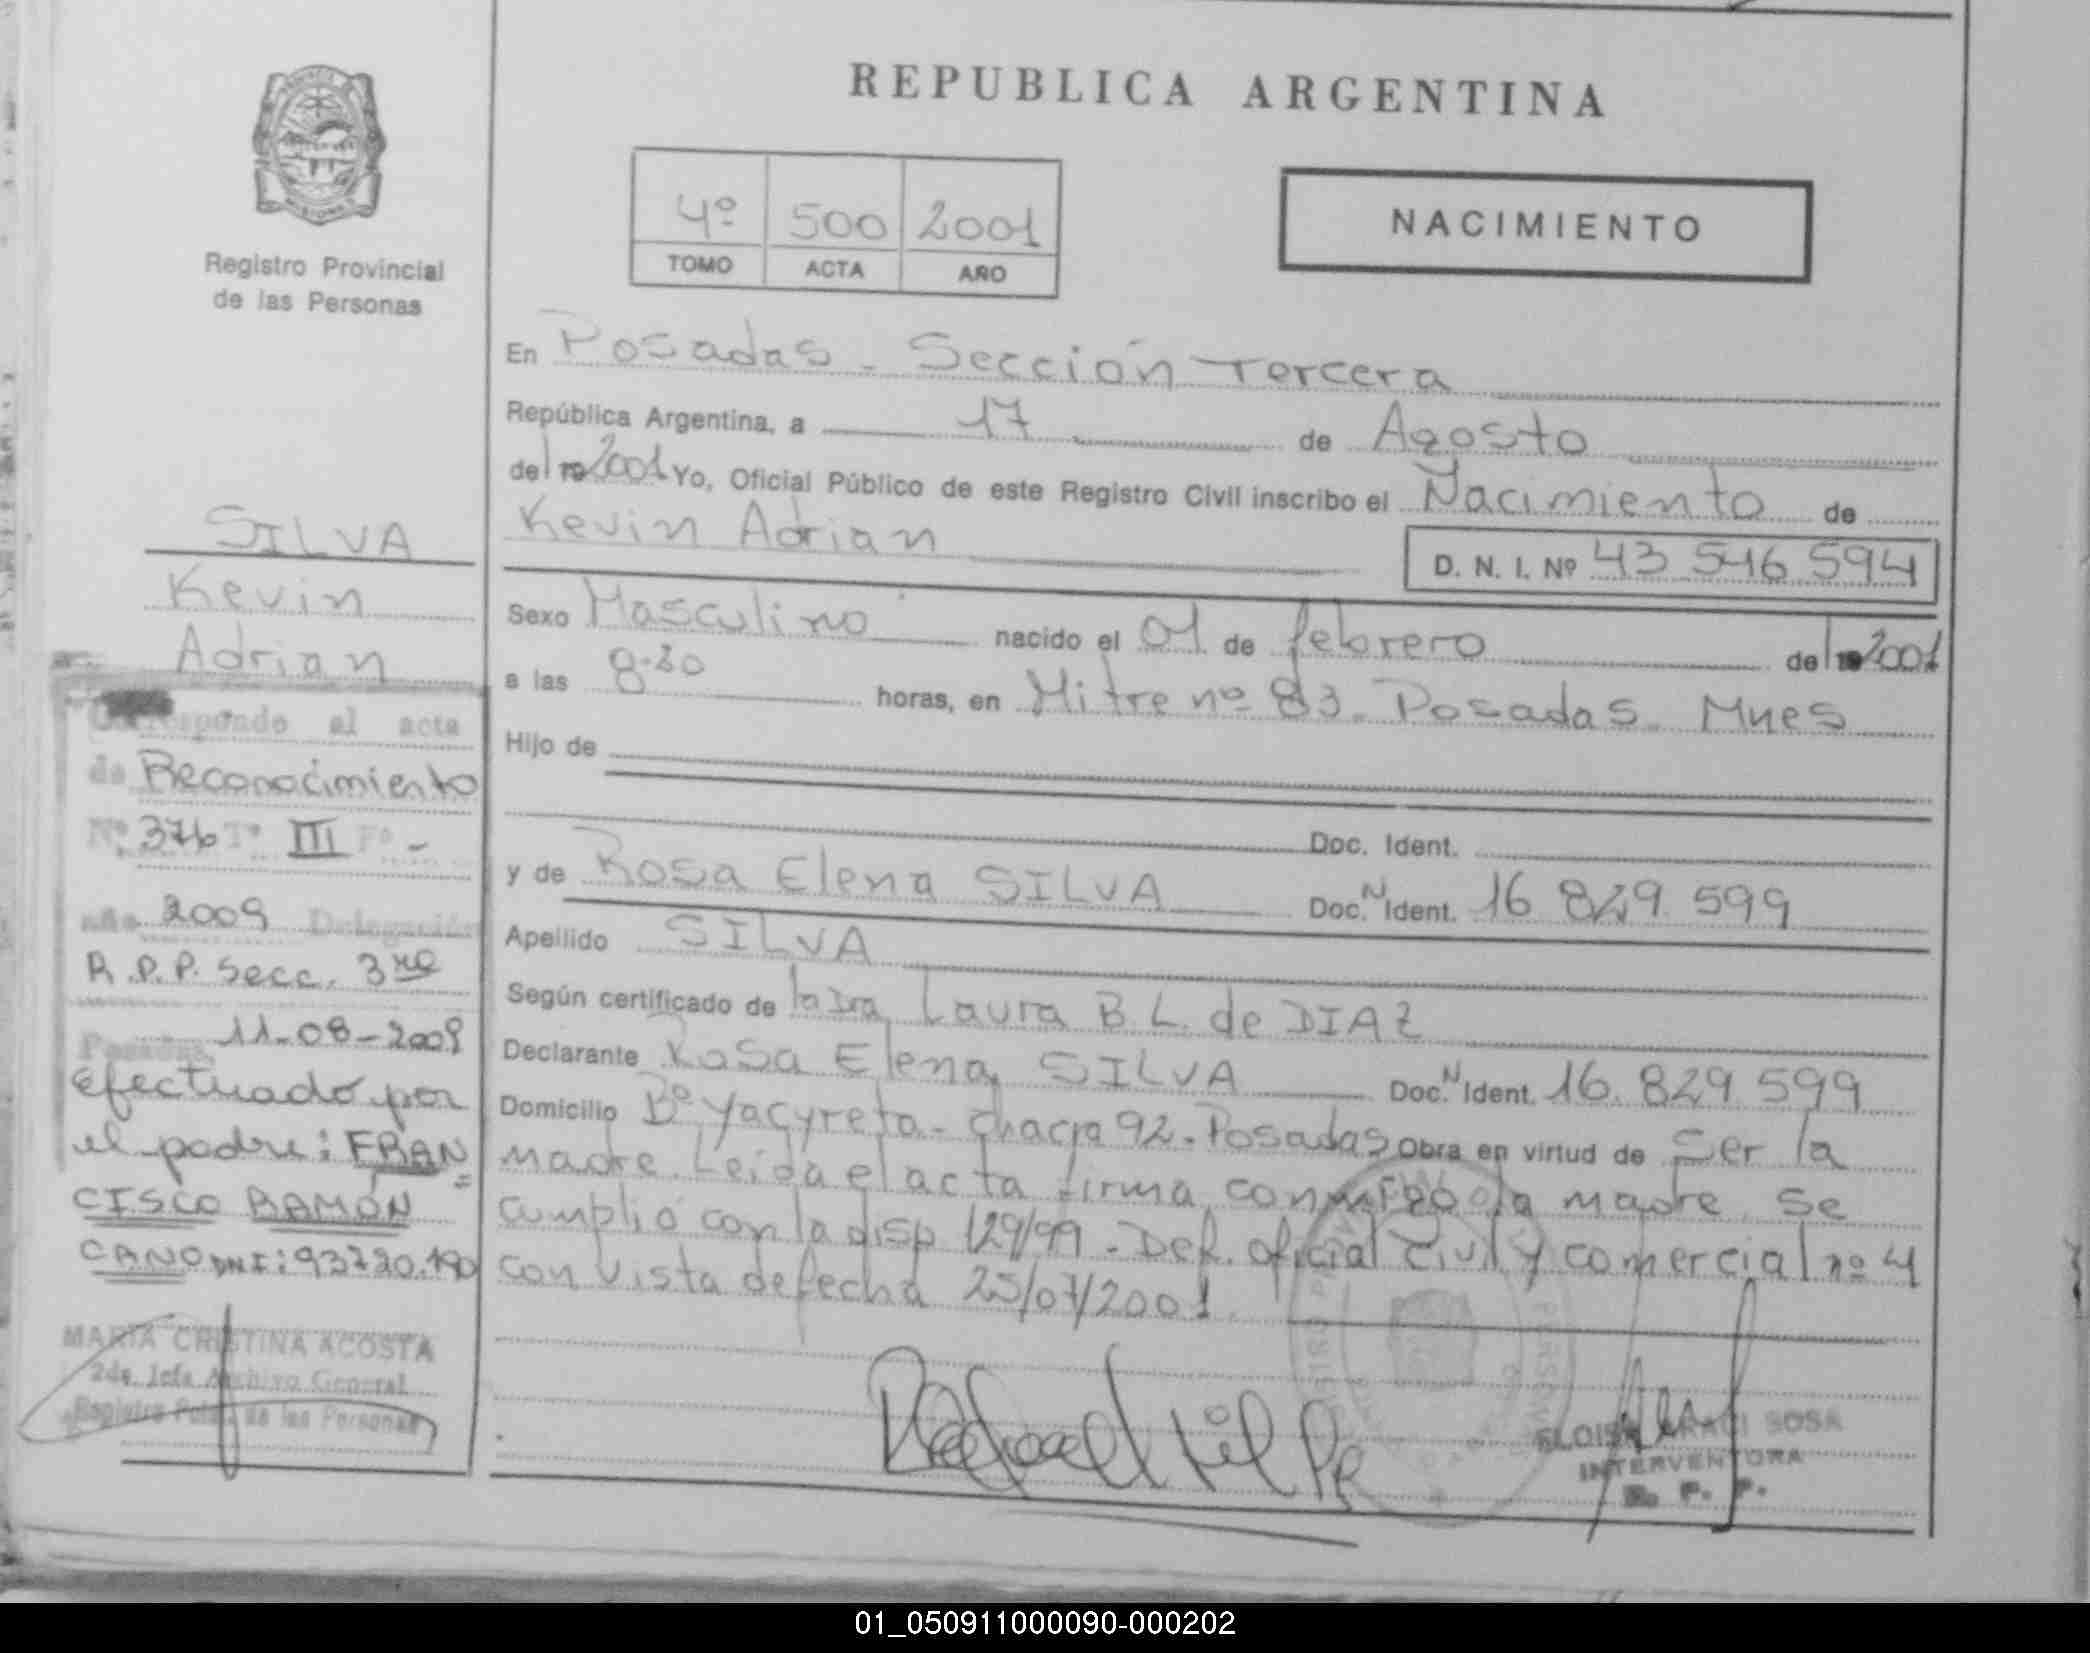 REPUBLICA ARGENTINA
MISIONES
Registro Provincial
de las Personas
4º 500 2001
TOMO ACTA AÑO
NACIMIENTO
En Posadas - Sección Tercera
República Argentina, a 17 de Agosto
del 2001 Yo, Oficial Público de este Registro Civil inscribo el Nacimiento de
Kevin Adrian
D. N. I. Nº 43 546 594
Sexo Masculino nacido el 01 de febrero del 2001
a las 8.20 horas, en Mitre nº 83. Posadas. Mnes
Hijo de
Doc. Ident.
y de Rosa Elena SILVA Doc. N Ident. 16 829 599
Apellido SILVA
Según certificado de la Dra Laura B L. de DIAZ
Declarante Rosa Elena SILVA Doc. N Ident. 16. 829 599
Domicilio Bº Yacyreta - chacra 92 - Posadas Obra en virtud de Ser la
madre. Leida el acta firma conmigo la madre. Se
cumplió con la disp 129/99 - Def. oficial Civil y comercial nº 4
con vista de fecha 25/07/2001.
ELOISA SOSA
INTERVENTORA
R. P. P.
SILVA
Kevin
Adrian
Corresponde al acta
de Reconocimiento
Nº 376 Tº III Fº -
año 2009 Delegación
R.P.P. Secc. 3ra
Posadas, 11-08-2009
Efectuado por
el padre: FRAN=
CISCO RAMÓN
CANO DNI: 93720.190
MARIA CRISTINA ACOSTA
2da. Jefa Archivo General
Registro Pcial. de las Personas
01_050911000090-000202